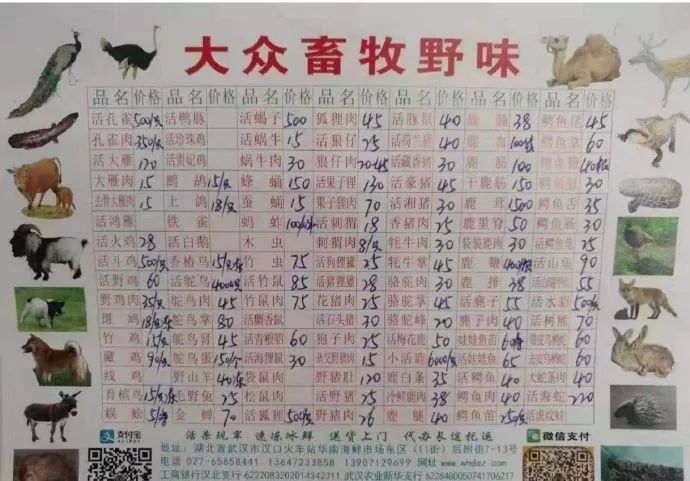 大众畜牧野味
品名 价格 品名 价格 品名 价格 品名 价格 品名 价格 品名 价格 品名 价格
活孔雀 500/只 活鸭豚 活蝎子 500 狐狸肉 45 活豚鼠 40 38 鳄鱼尾 45
孔雀肉 350/只 活珍珠鸡 活蜗牛 15 活狼仔 25 活荷兰猪 40 鳄鱼掌 60
活大雁 120 活贵妃鸡 蜗牛肉 30 狼仔肉 活藏香猪 30 100
大雁肉 15 15/只 蜂蛹 150 活果子狸 130 活豪猪 45 干鹿筋 150 30
去骨大雁肉 15 土鸽 18/只 蚕蛹 果子狸肉 70 活湘猪 30 鹿茸 1500 鳄鱼舌 35
活鸿雁 铁雀 蚂蚱 活刺猬 18 香猪肉 25 鹿里脊 50 鳄鱼肠 30
活火鸡 28 活白鹅 木虫 刺猬肉 8/只 牦牛掌 40 30 25
活斗鸡 500/只 香椿鸟 竹虫 75 活狗狸獾 25 牦牛肉 45 鹿鞭 活山龟 90
活野鸡 60 活鸵鸟 活竹鼠 85 活猪狸獾 28 骆驼掌 40 鹿排 38 55
野鸡肉 35/只 鸵鸟肉 45 竹鼠肉 75 花猪肉 25 骆驼肉 45 活麂子 55 活水貂
斑鸠 鸵鸟掌 80 活麝香鼠 活石头猪 30 骆驼峰 20 麂子肉 40 活树熊 70
竹鸡 15/只 鸵鸟肾 45 活青根貂 60 狍子肉 25 活梅花鹿 50 娃娃鱼苗
藏鸡 90/只 鸵鸟蛋 150/个 活海狸鼠 30 杂交野猪肉 15 小活鹿 6000/只 活娃娃鱼 65
线鸡 野山羊 袋鼠肉 野猪肚 120 鹿白条 35 活鳄鱼 40 大蛇条肉 40
育槟鸟 活毛野兔 25 松鼠肉 活野猪 25 冷鲜鹿肉 38 鳄鱼肉 40 活海蛇 220
蜈蚣 金蝉 70 活狐狸 500/只 野猪肉 26 鹿腿 40 鳄鱼苗 活虎纹蛙
支付宝 活杀现宰 速冻冰鲜 送货上门 代办长途托运 微信支付
地址：湖北省武汉市汉口火车站华南海鲜市场东区（11街）后附街7-13号
电话：027-65658441 13647233858 13907129699 www.whdaz.com
工商银行汉北支行 6222083202014342311 武汉农业新华支行 6228480050741706217